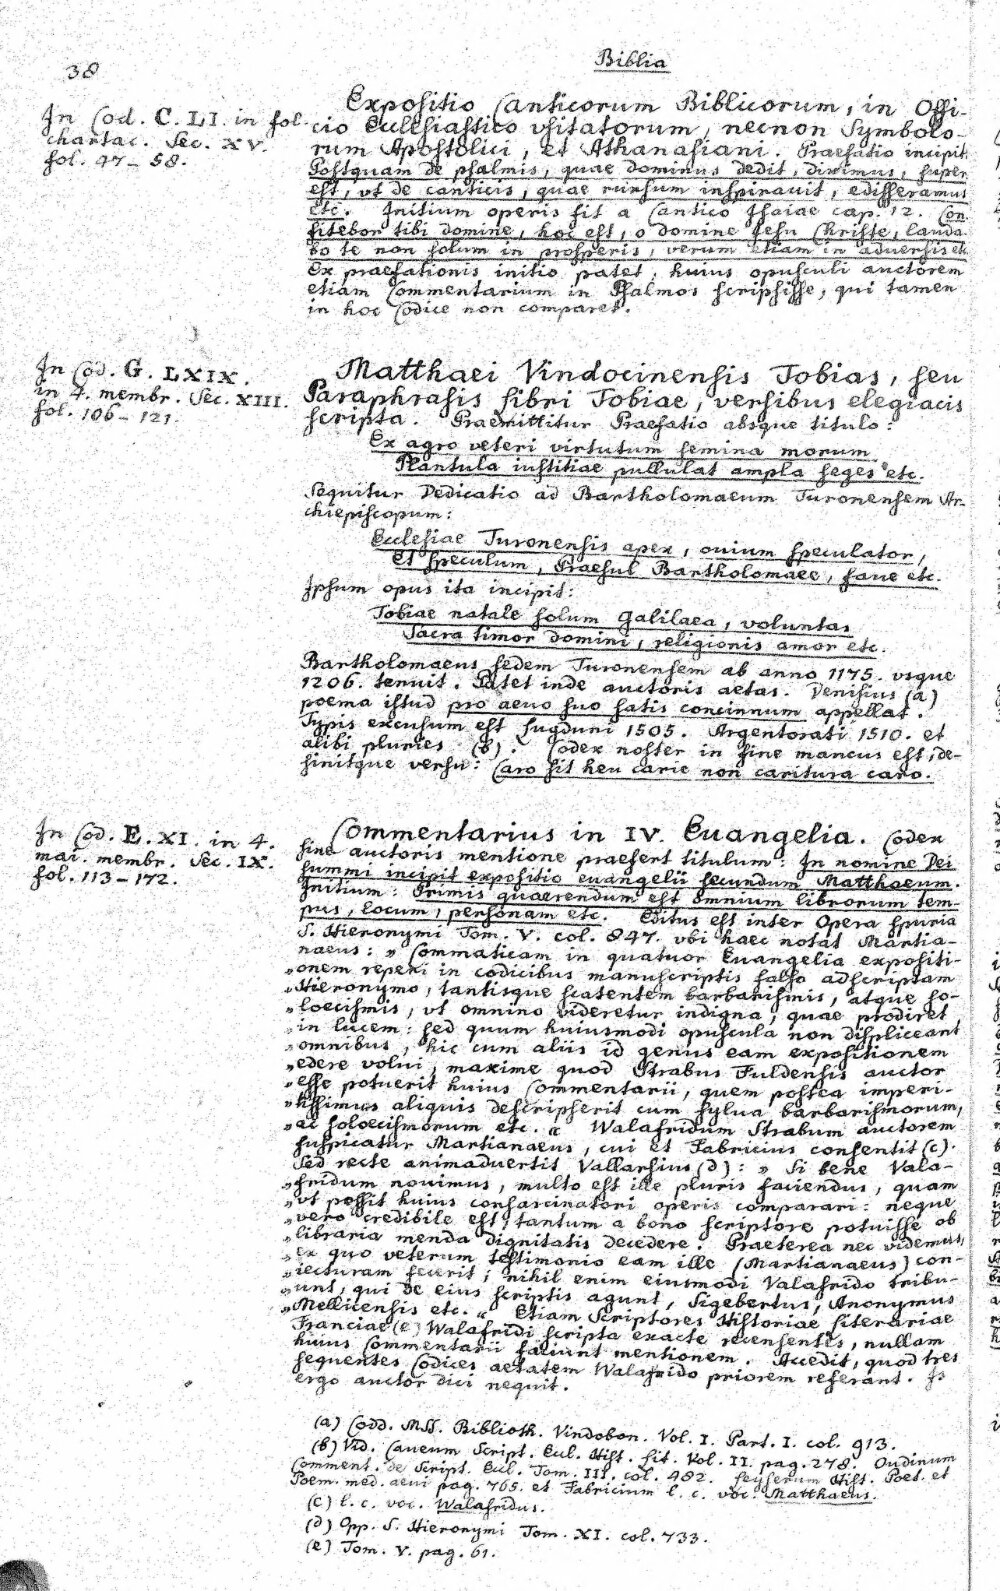 38
Biblia
In Cod. C. LI. in fol.
chartac. Sec. XV.
fol. 47 - 58.
Expositio Canticorum Biblicorum, in Offi-
cio Ecclesiastico vsitatorum, necnon Symbolo-
rum Apostolici, et Athanasiani. Praefatio incipit:
Postquam de psalmis, quae dominus dedit, diximus, super
est, vt de canticis, quae rursum inspirauit, edisseramus
etc. Initium operis fit a Cantico Isaiae cap. 12. Con
fitebor tibi domine, hoc est, o domine Jesu Christe, lauda
bo te non solum in prosperis, verum etiam in aduersis etc.
Ex praefationis initio patet, huius opusculi auctorem
etiam Commentarium in Psalmos scripsisse, qui tamen
in hoc Codice non comparet.
In Cod. G. LXIX.
in 4. membr. Sec. XIII.
fol. 106 - 121.
Matthaei Vindocinensis Tobias, seu
Paraphrasis libri Tobiae, versibus elegiacis
scripta. Praemittitur Praefatio absque titulo:
Ex agro veteri virtutum semina morum
Plantula iustitiae pullulat ampla seges etc.
Sequitur Dedicatio ad Bartholomaeum Turonensem Ar-
chiepiscopum:
Ecclesiae Turonensis apex, ouium speculator,
Et speculum, Praesul Bartholomaee, faue etc.
Ipsum opus ita incipit:
Tobiae natale solum Galilaea, voluntas
Sacra timor domini, religionis amor etc.
Bartholomaeus sedem Turonensem ab anno 1175. vsque
1206. tenuit. Patet inde auctoris aetas. Denisius (a)
poema istud pro aeuo suo satis concinnum appellat.
Typis excusum est Lugduni 1505. Argentorati 1510. et
alibi pluries (b). Codex noster in fine mancus est, de-
sinitque versu: Caro sit heu carie non caritura caro.
In Cod. E. XI. in 4.
mai. membr. Sec. IX.
fol. 113 - 172.
Commentarius in IV. Euangelia. Codex
sine auctoris mentione praefert titulum: In nomine Dei
summi incipit expositio euangelii secundum Matthaeum.
Initium: Primis quaerendum est omnium librorum tem-
pus, locum, personam etc. Editus est inter Opera spuria
S. Hieronymi Tom. V. col. 847. vbi haec notat Martia-
naeus: „Commaticam in quatuor Euangelia expositi-
„onem reperi in codicibus manuscriptis falso adscriptam
„Hieronymo, tantisque scatentem barbarismis, atque so-
„loecismis, vt omnino videretur indigna, quae prodiret
„in lucem: sed quum huiusmodi opuscula non displiceant
„omnibus, hic cum aliis id genus eam expositionem
„edere volui, maxime quod Strabus Fuldensis auctor
„esse potuerit huius Commentarii, quem postea imperi-
„tissimus aliquis descripserit cum sylua barbarismorum,
„ac soloecismorum etc.“ Walafridum Strabum auctorem
suspicatur Martianaeus, cui et Fabricius consentit (c).
Sed recte animaduertit Vallarsius (d): „Si bene Vala-
„fridum nouimus, multo est ille pluris faciendus, quam
„vt possit huius consarcinatori operis comparari: neque
„vero credibile est, tantum a bono scriptore potuisse ob
„libraria menda dignitatis decedere. Praeterea nec videmus,
„ex quo veterum testimonio eam ille (Martianaeus) con-
„iecturam fecerit; nihil enim eiusmodi Valafrido tribu-
„unt, qui de eius scriptis agunt, Sigebertus, Anonymus
„Mellicensis etc.“ Etiam Scriptores Historiae literariae
Franciae (e) Walafridi scripta exacte recensentes, nullam
huius Commentarii faciunt mentionem. Accedit, quod tres
sequentes Codices aetatem Walafrido priorem referant. Is
ergo auctor dici nequit.
(a) Codd. MSS. Biblioth. Vindobon. Vol. I. Part. I. col. 913.
(b) Vid. Caueum Script. Eccl. Hist. Lit. Vol. II. pag. 278. Oudinum
Comment. de Script. Eccl. Tom. III. col. 482. Leyserum Hist. Poet. et
Poem. med. aeui pag. 765. et Fabricium l. c. voc. Matthaeus.
(c) l. c. voc. Walafridus.
(d) Opp. S. Hieronymi Tom. XI. col. 733.
(e) Tom. V. pag. 61.